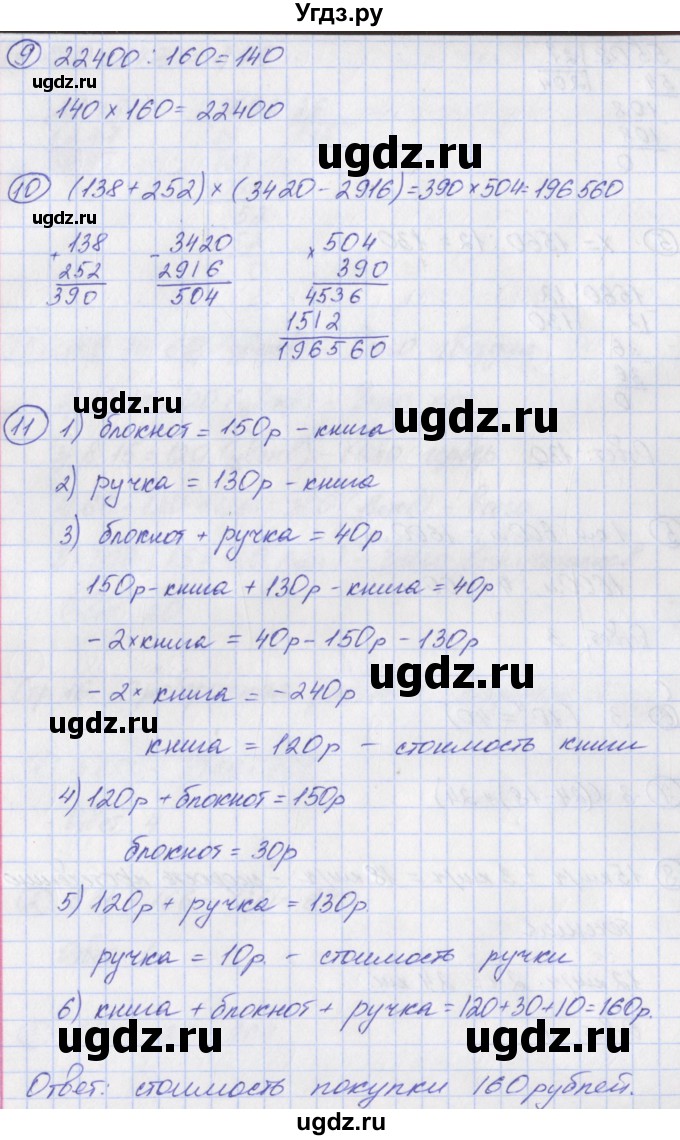 Угдз.ру
9 22400 : 160 = 140
ugdz.ru
140 × 160 = 22400
ugdz.ru
10 (138 + 252) × (3420 - 2916) = 390 × 504 = 196560
+ 138 - 3420 × 504
252 2916 390
390 504 4536
1512
196560
ugdz.ru
ugdz.ru
11 1) блокнот = 150р - книга
ugdz.ru
2) ручка = 130р - книга
3) блокнот + ручка = 40р
ugdz.ru
150р - книга + 130р - книга = 40р
- 2 × книга = 40р - 150р - 130р
ugdz.ru
- 2 × книга = - 240р
ugdz.ru
книга = 120р - стоимость книги
4) 120р + блокнот = 150р
ugdz.ru
блокнот = 30р
5) 120р + ручка = 130р.
ugdz.ru
ручка = 10р. - стоимость ручки
6) книга + блокнот + ручка = 120 + 30 + 10 = 160р.
ugdz.ru
ugdz.ru
Ответ: стоимость покупки 160 рублей.
ugdz.ru